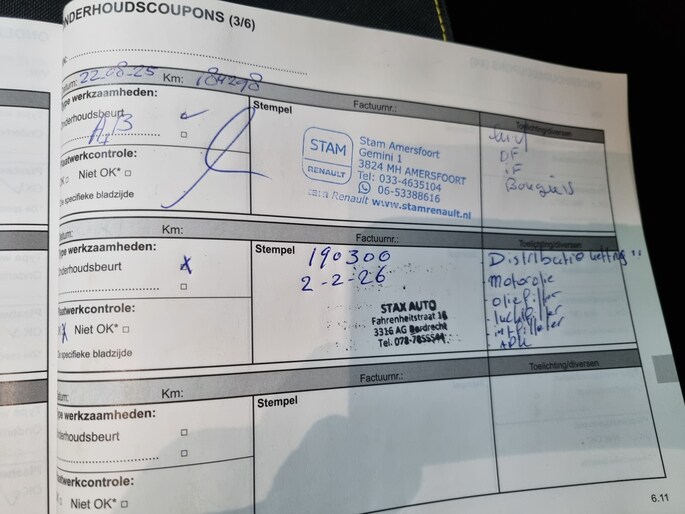 NDERHOUDSCOUPONS (3/6)
Datum: 22-08-25 Km: 184298
Type werkzaamheden:
Onderhoudsbeurt
A/B
Plaatwerkcontrole:
OK Niet OK*
Zie specifieke bladzijde
Stempel
Factuurnr.:
STAM
RENAULT
Stam Amersfoort
Gemini 1
3824 MH AMERSFOORT
Tel: 033-4635104
06-53388616
Renault www.stamrenault.nl
Toelichting/diversen
OF
iF
Bougies
Datum:
Type werkzaamheden:
Onderhoudsbeurt
X
Plaatwerkcontrole:
X Niet OK*
Zie specifieke bladzijde
Stempel
Factuurnr.:
190300
2-2-26
STAX AUTO
Fahrenheitstraat 18
3316 AG Dordrecht
Tel. 078-7855544
Toelichting/diversen
- Distributie ketting
- motorolie
- oliefilter
- luchtfilter
- intfilter
- APK
Datum: Km:
Type werkzaamheden:
Onderhoudsbeurt
Plaatwerkcontrole:
Niet OK*
Stempel
Factuurnr.:
Toelichting/diversen
6.11